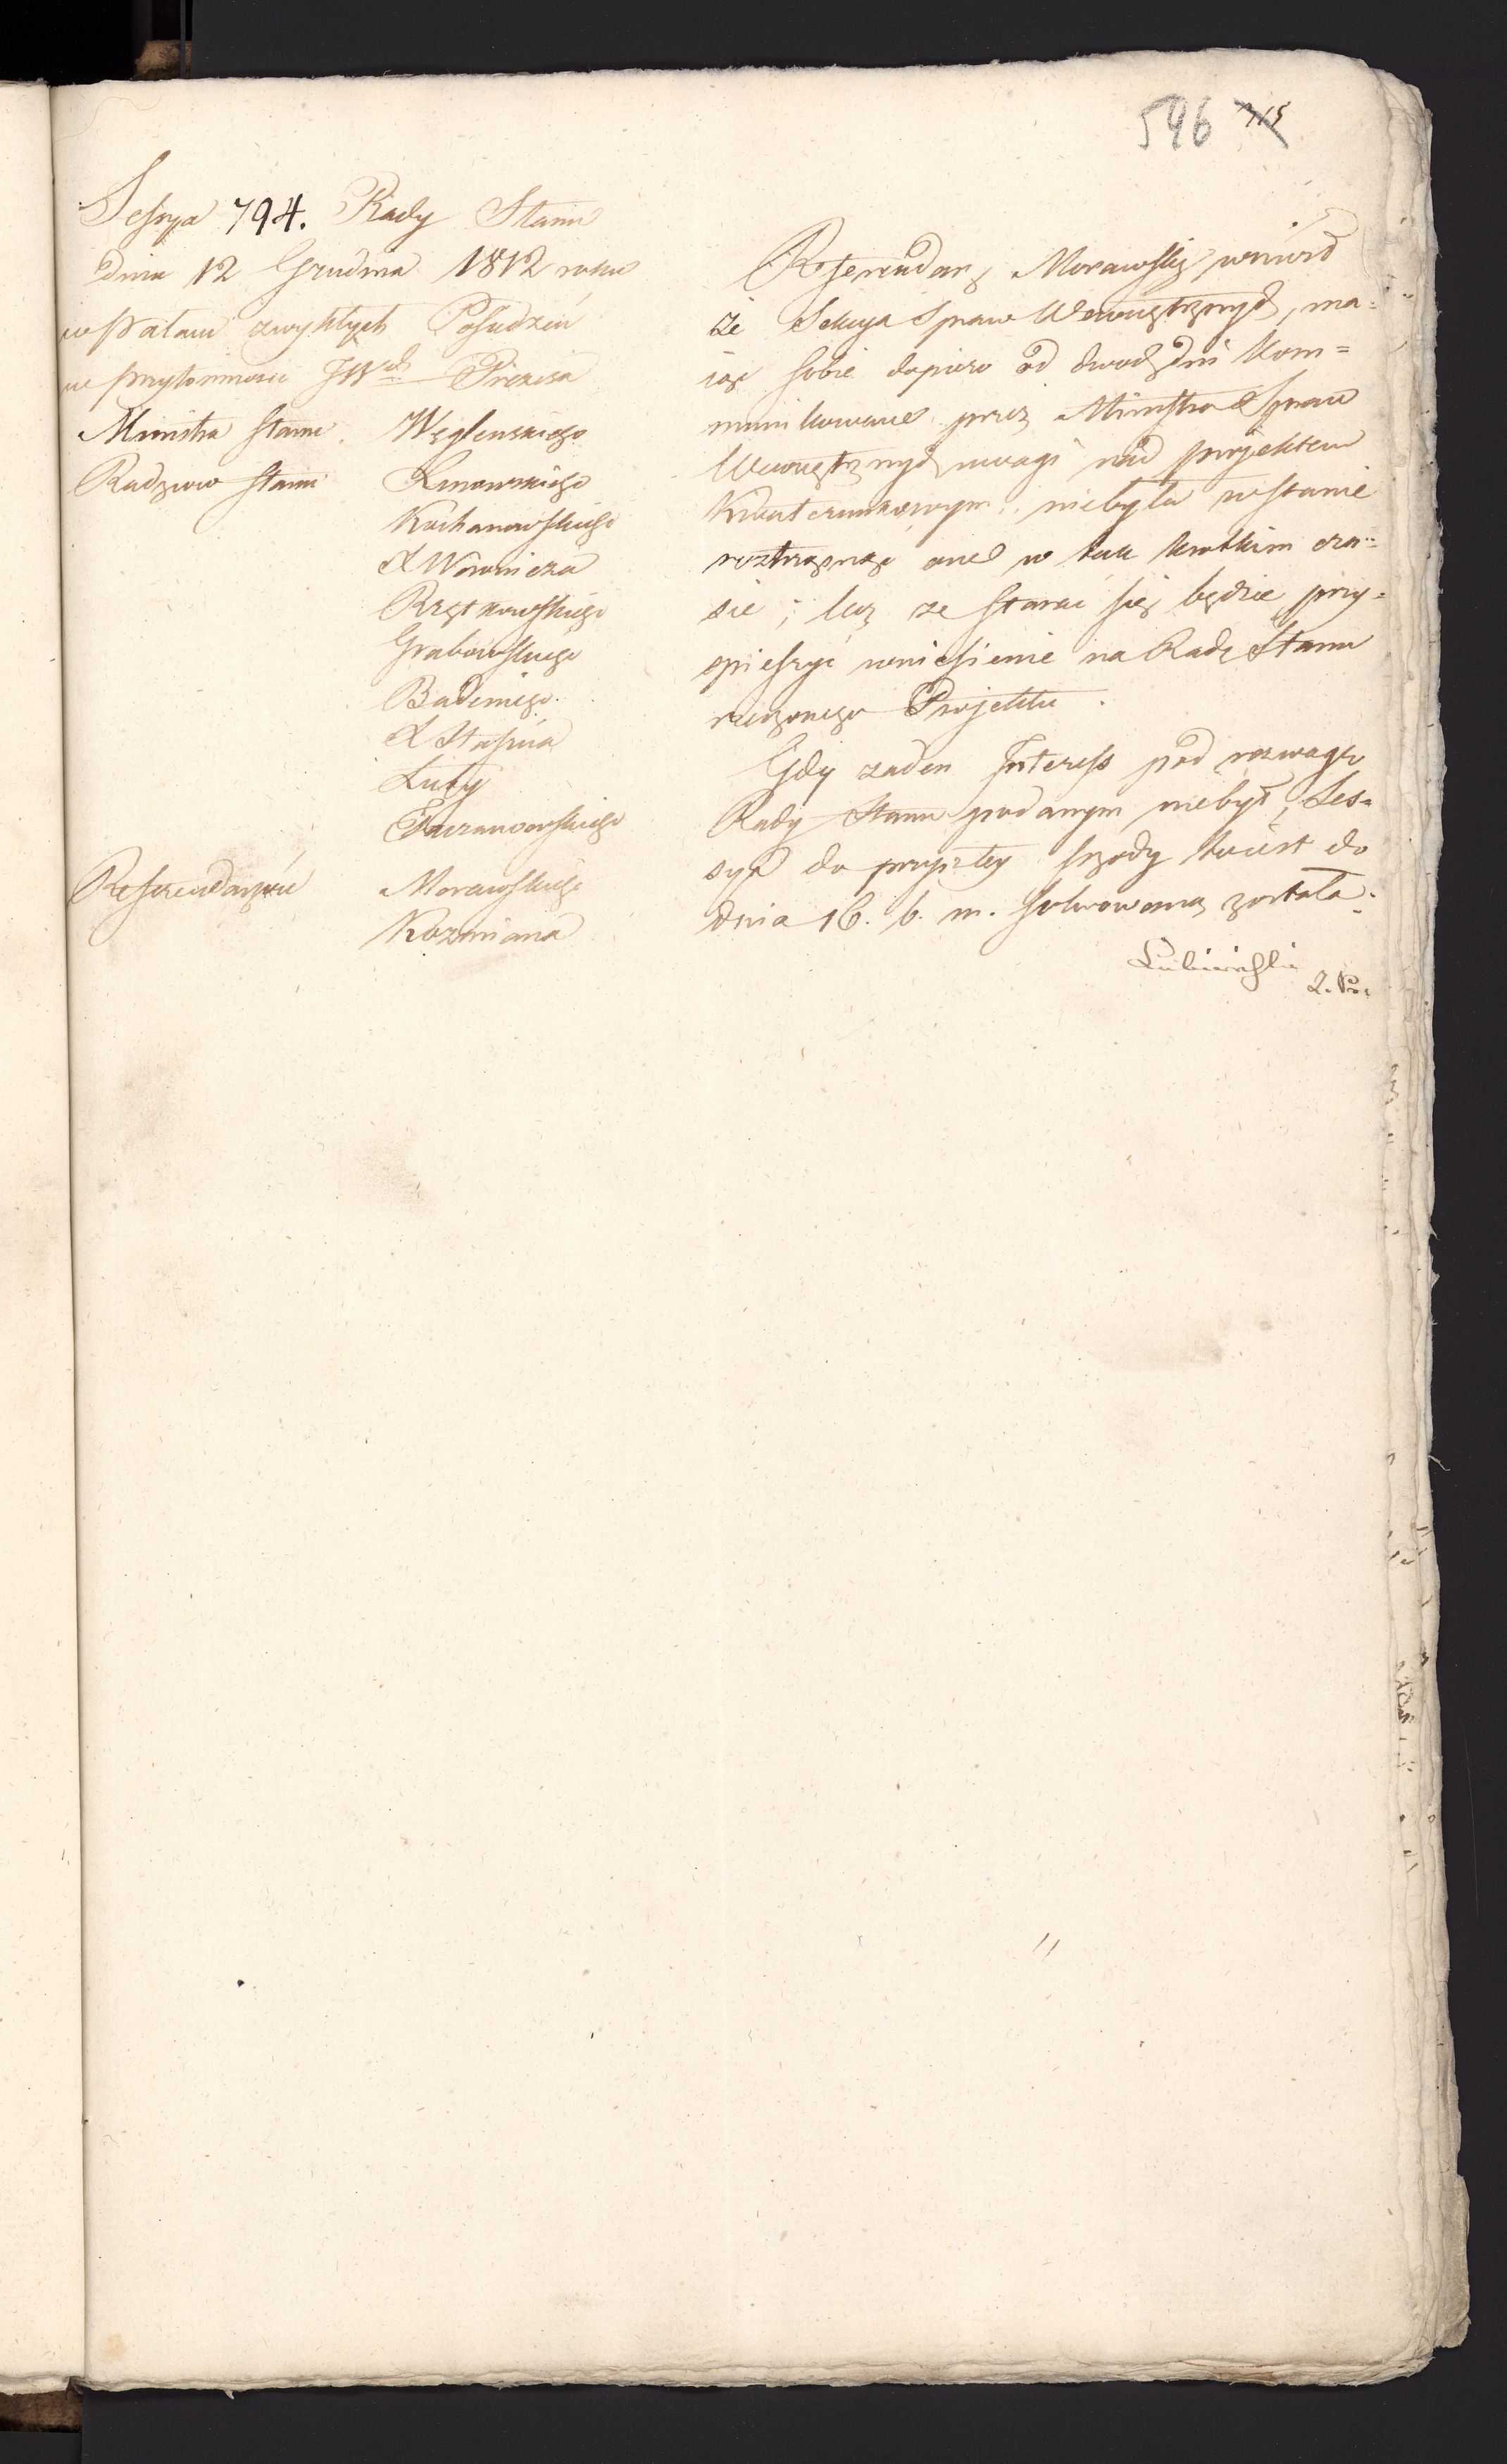 596 315
Sessya 794. Rady Stanu
dnia 12 Grudnia 1812 roku
w Pałacu zwykłych Posiedzeń
w przytomności JWch Prezesa
Ministra Stanu Węgleńskiego
Radzców Stanu Linowskiego
Kochanowskiego
Woronicza
Rzętkowskiego
Grabowskiego
Badeniego
Staszica
Łuby
Morawskiego
Referendarzów
Kozmiana
Referendarz Morawski wniósł
że Sekcya Spraw Wewnętrznych, ma=
iąc sobie dopiero od dwóch dni kom=
munikowane przez Ministra Spraw
Wewnętrznych uwagi nad projektem
Kwaterunkowym, niebyła wstanie
roztrząsnąć one w tak krótkim cza=
sie; lecz że starać się będzie przy=
spieszyć wniesienie na Radę Stanu
rzeczonego Projektu.
Gdy żaden Interess pod rozwagę
Rady Stanu podanym niebył, Ses=
sya do przyszłey srzody to iest do
dnia 16. b. m. solwowaną została.
Lubieński